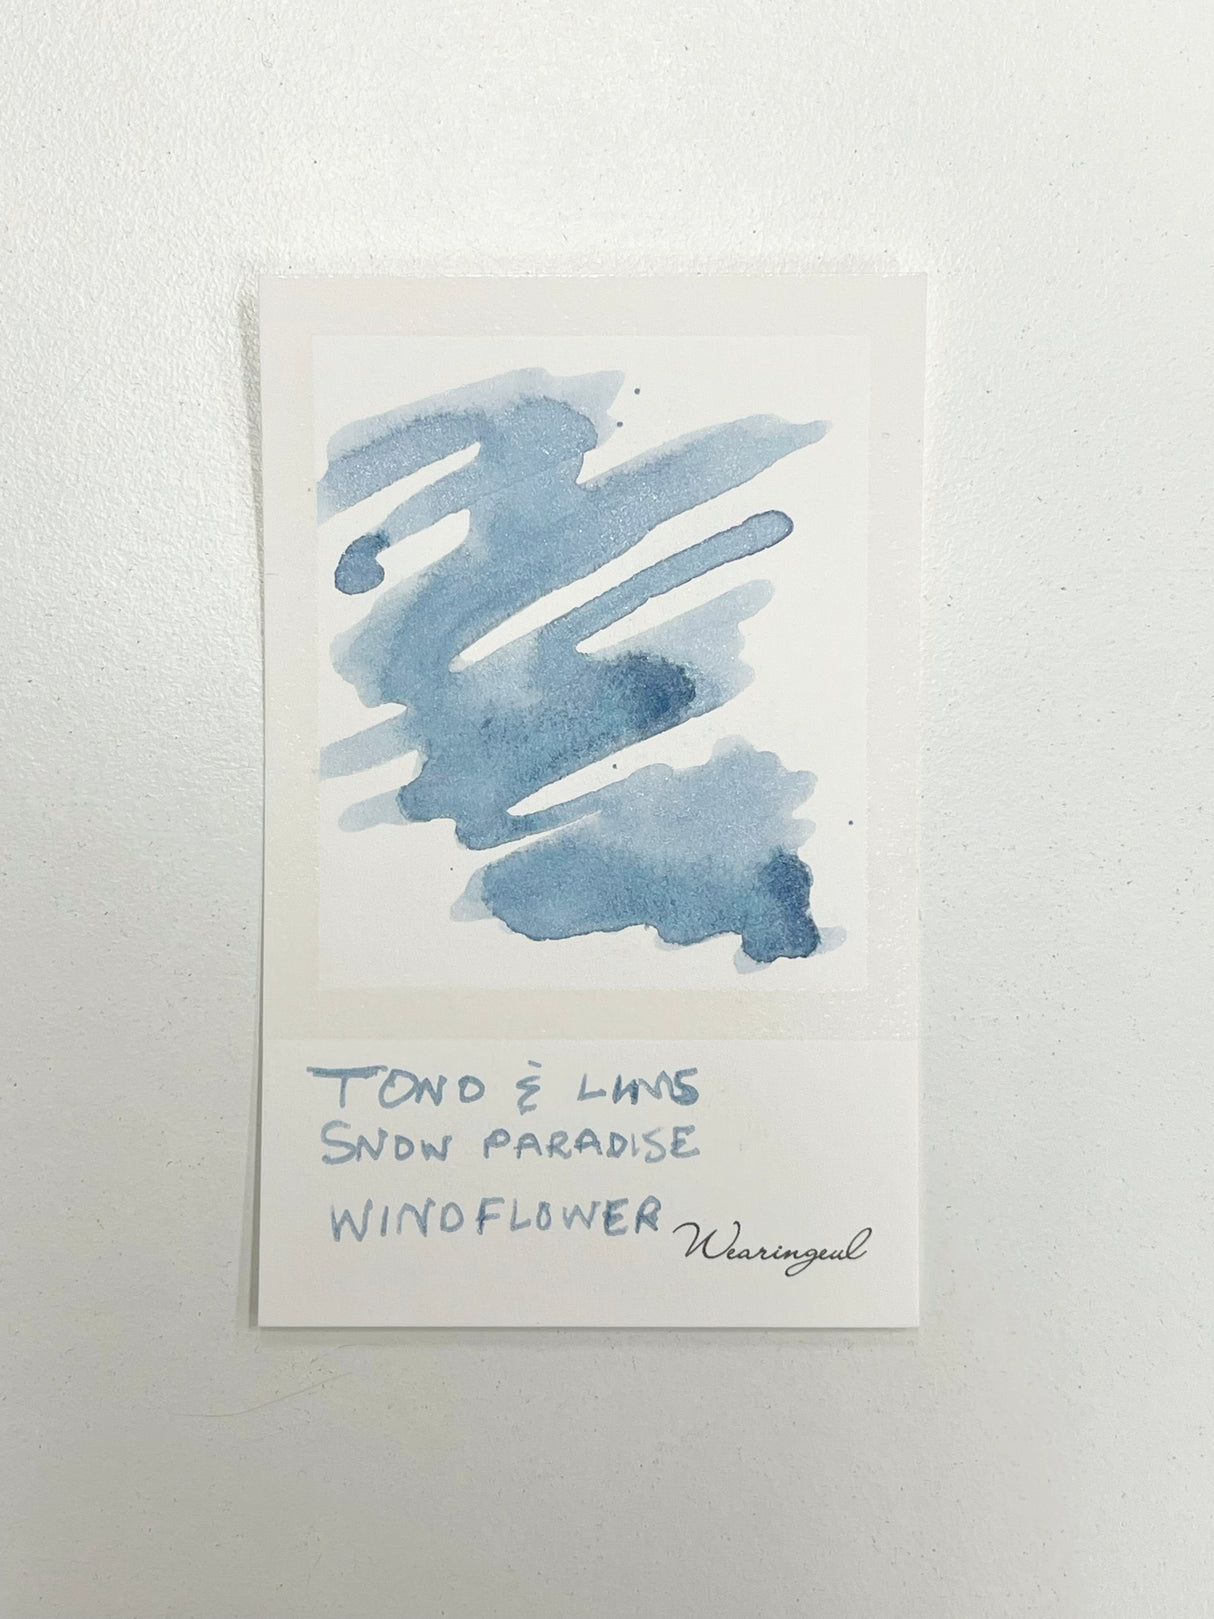 TONO & LIMS
SNOW PARADISE
WINDFLOWER
Wearingeul